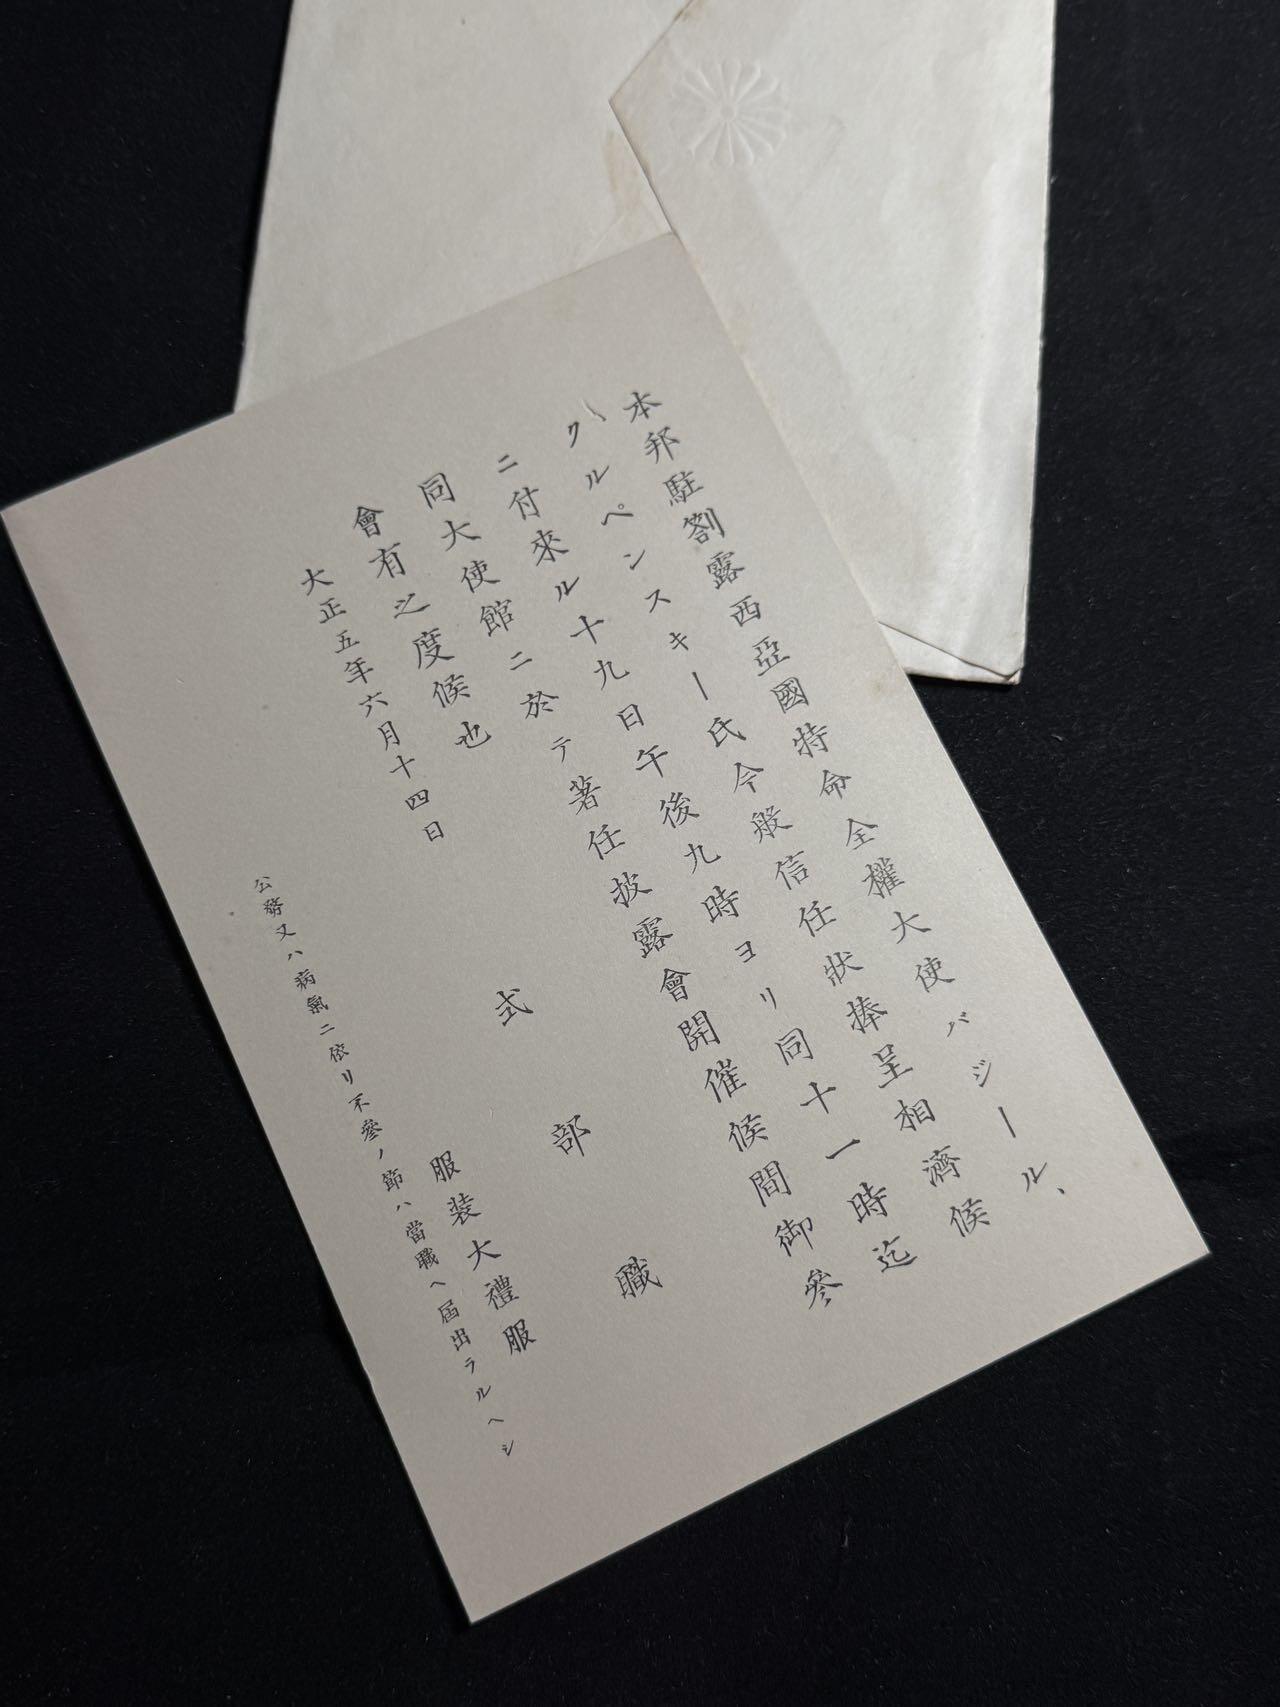 本邦駐劄露西亞國特命全權大使バジール、
クルペンスキー氏今般信任狀捧呈相濟候
ニ付來ル十九日午後九時ヨリ同十一時迄
同大使館ニ於テ著任披露會開催候間御參
會有之度候也
大正五年六月十四日
式部職
服装大禮服
公務又ハ病氣ニ依リ不參ノ節ハ當職ヘ届出ラルヘシ